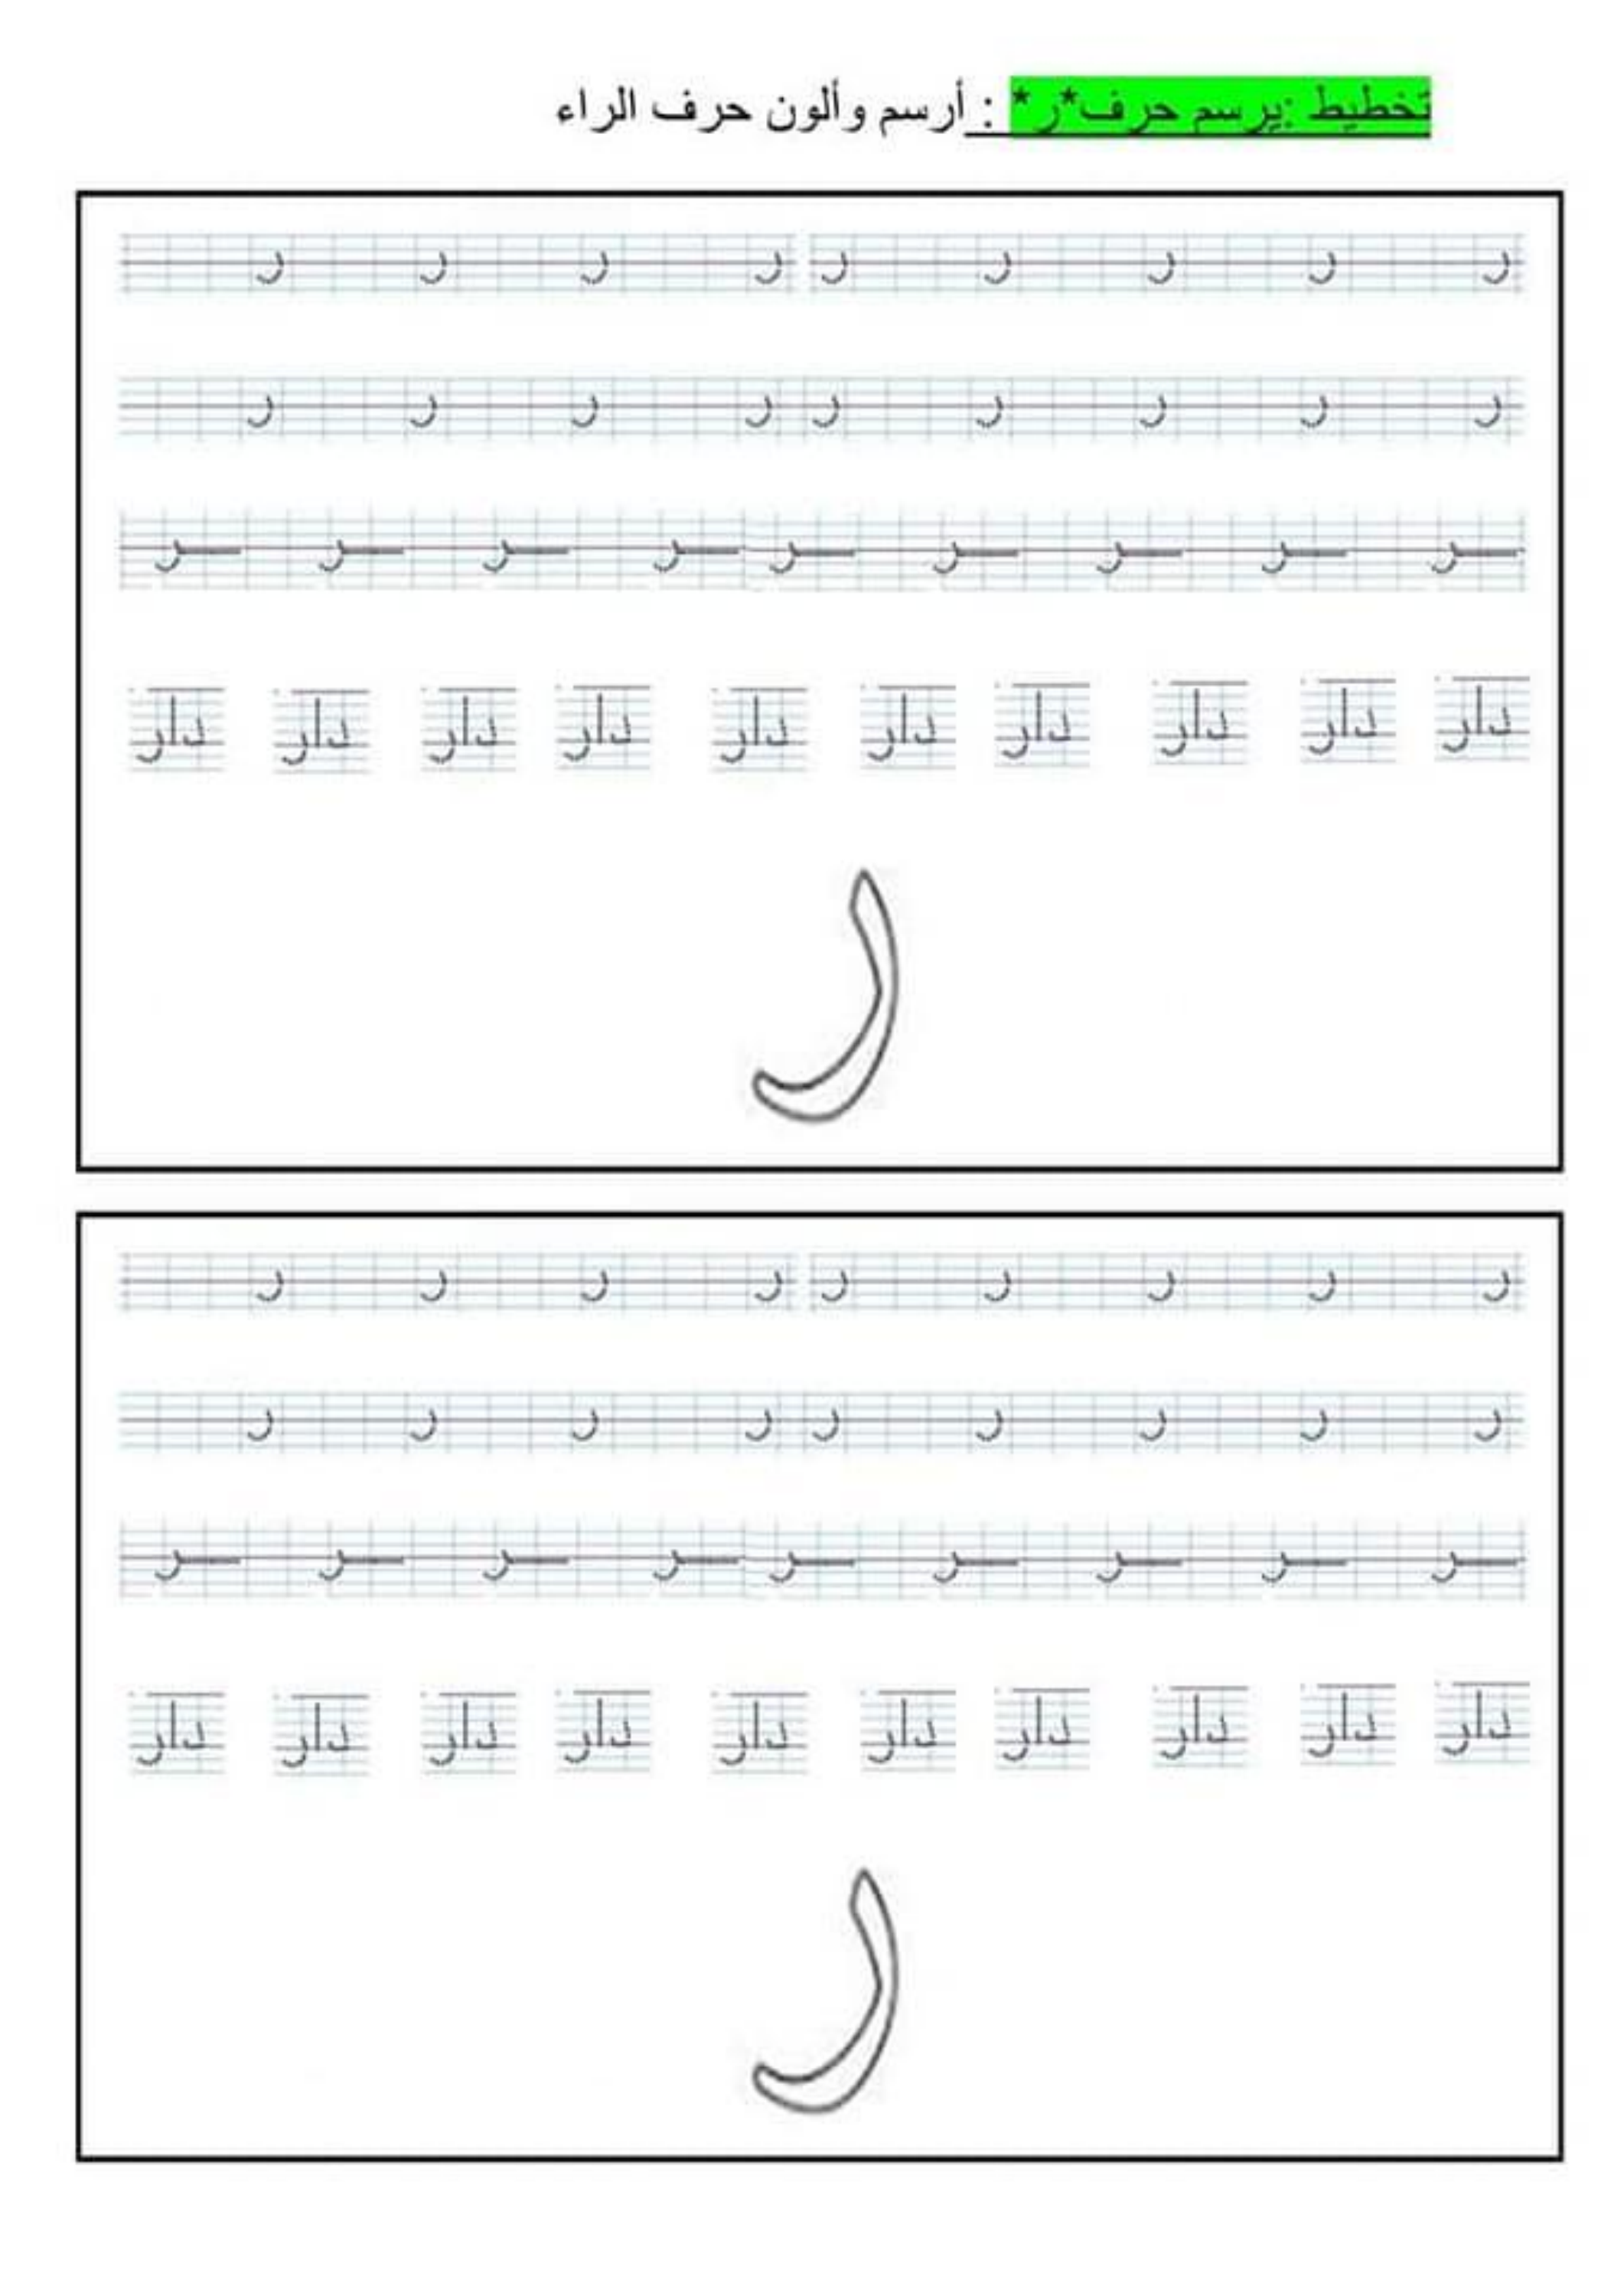 تخطيط :يرسم حرف*ر* : أرسم وألون حرف الراء
ر ر ر ر ر ر ر ر ر
ر ر ر ر ر ر ر ر ر
ـر ـر ـر ـر ـر ـر ـر ـر ـر
دار دار دار دار دار دار دار دار دار دار
ر
ر ر ر ر ر ر ر ر ر
ر ر ر ر ر ر ر ر ر
ـر ـر ـر ـر ـر ـر ـر ـر ـر
دار دار دار دار دار دار دار دار دار دار
ر